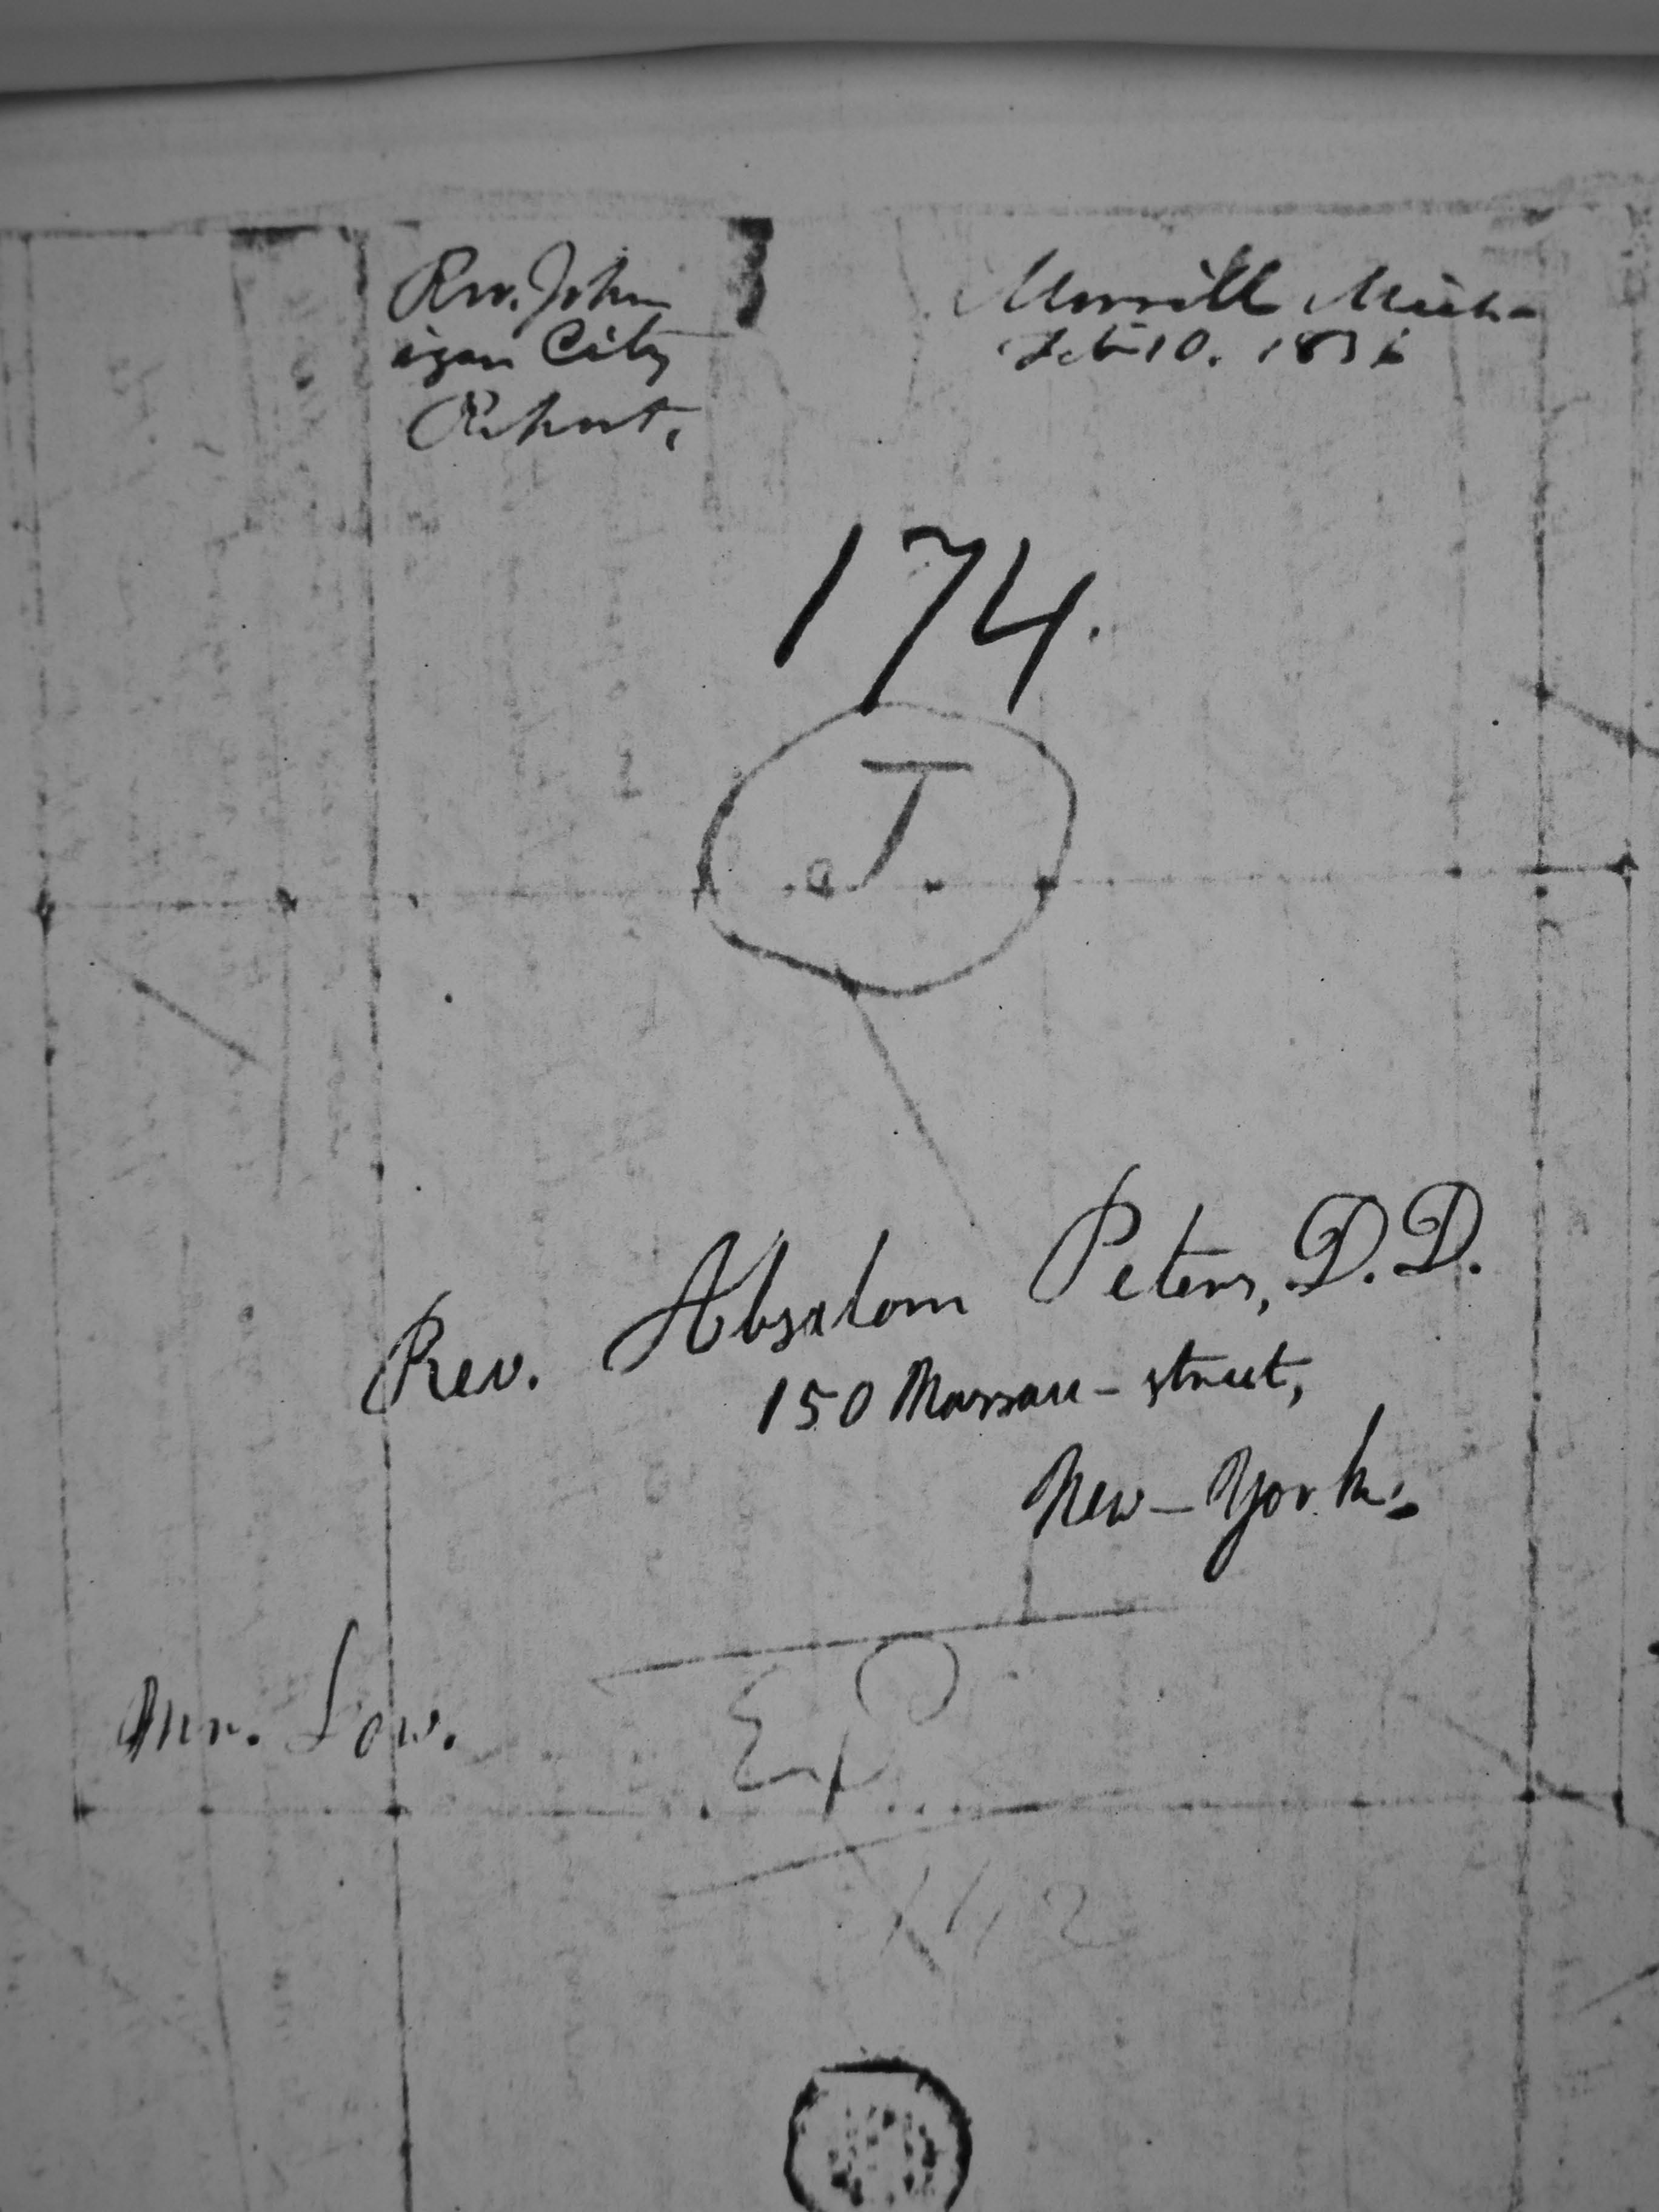 Rev. John Merrill Mich-
igan City Feb 10. 1836
Report.
174.
J.
Rev. Absalom Peters, D.D.
150 Nassau-street,
New-York.
Mr. Low.
Ex
142